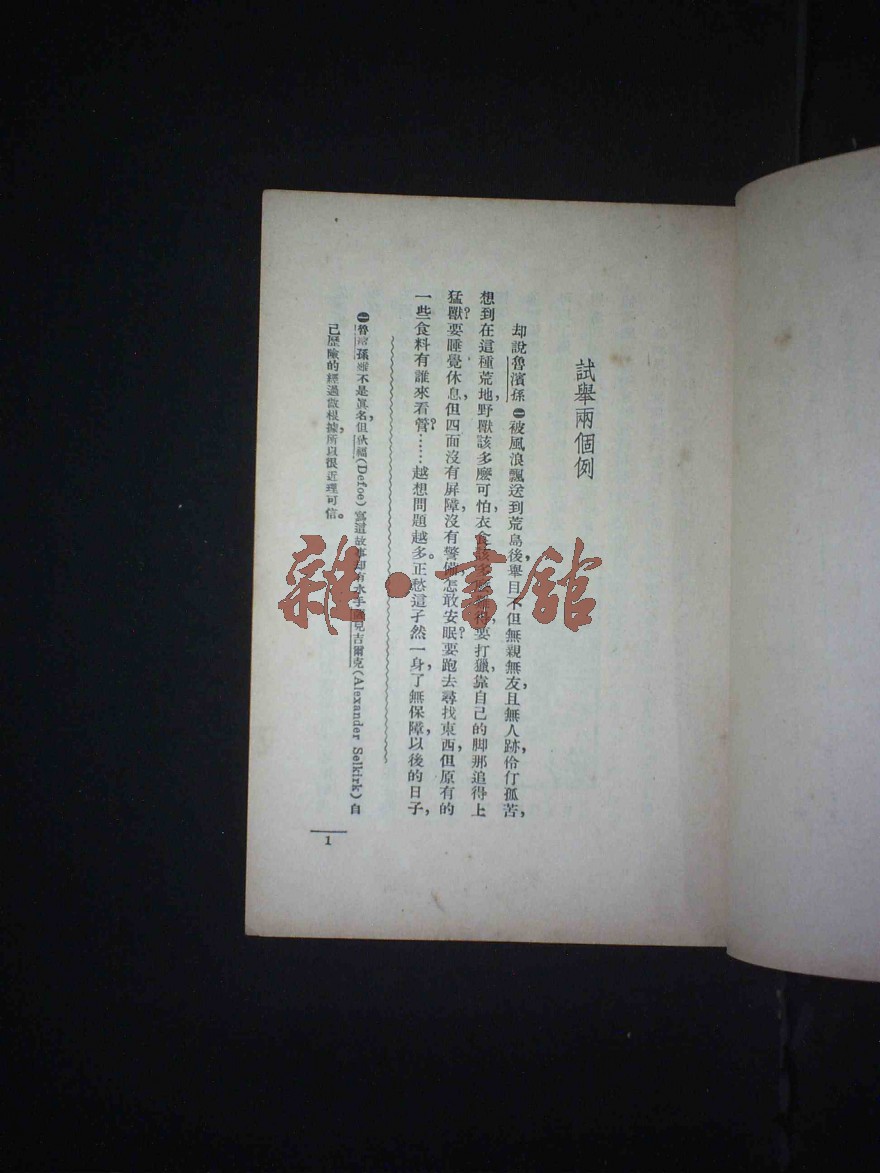 試舉兩個例
却說魯濱孫㊀被風浪飄送到荒島後，舉目不但無親無友，且無人跡，伶仃孤苦，
想到在這種荒地，野獸該多麼可怕，衣食該多麼難得，要打獵，靠自己的脚那追得上
猛獸？要睡覺休息，但四面沒有屏障，沒有警備，怎敢安眠？要跑去尋找東西，但原有的
一些食料有誰來看管？……越想問題越多。正愁這孑然一身，了無保障，以後的日子，
㊀魯濱孫雖不是眞名，但狄福(Defoe)寫這故事却有水手 見吉爾克(Alexander Selkirk)自
已歷險的經過做根據，所以很近理可信。
1
雜·書館